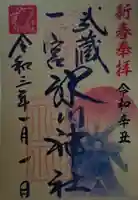 新春奉拝
令和辛丑
武蔵
一宮
氷川神社
令和三年一月一日